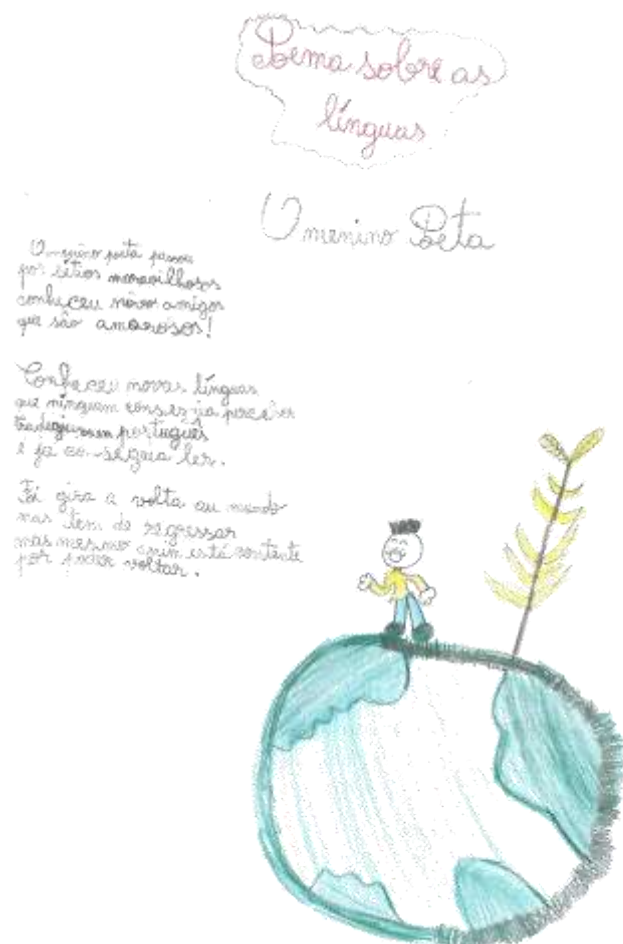 Poema sobre as
línguas
O menino Poeta
O menino poeta passou
por sítios maravilhosos
conheceu novos amigos
que são amorosos!
Conheceu novas línguas
que ninguam conseguia perceber
português
e já conseguia ler.
Foi gira a volta ao mundo
mas tem de regressar
mas mesmo assim está contente
por poder voltar.